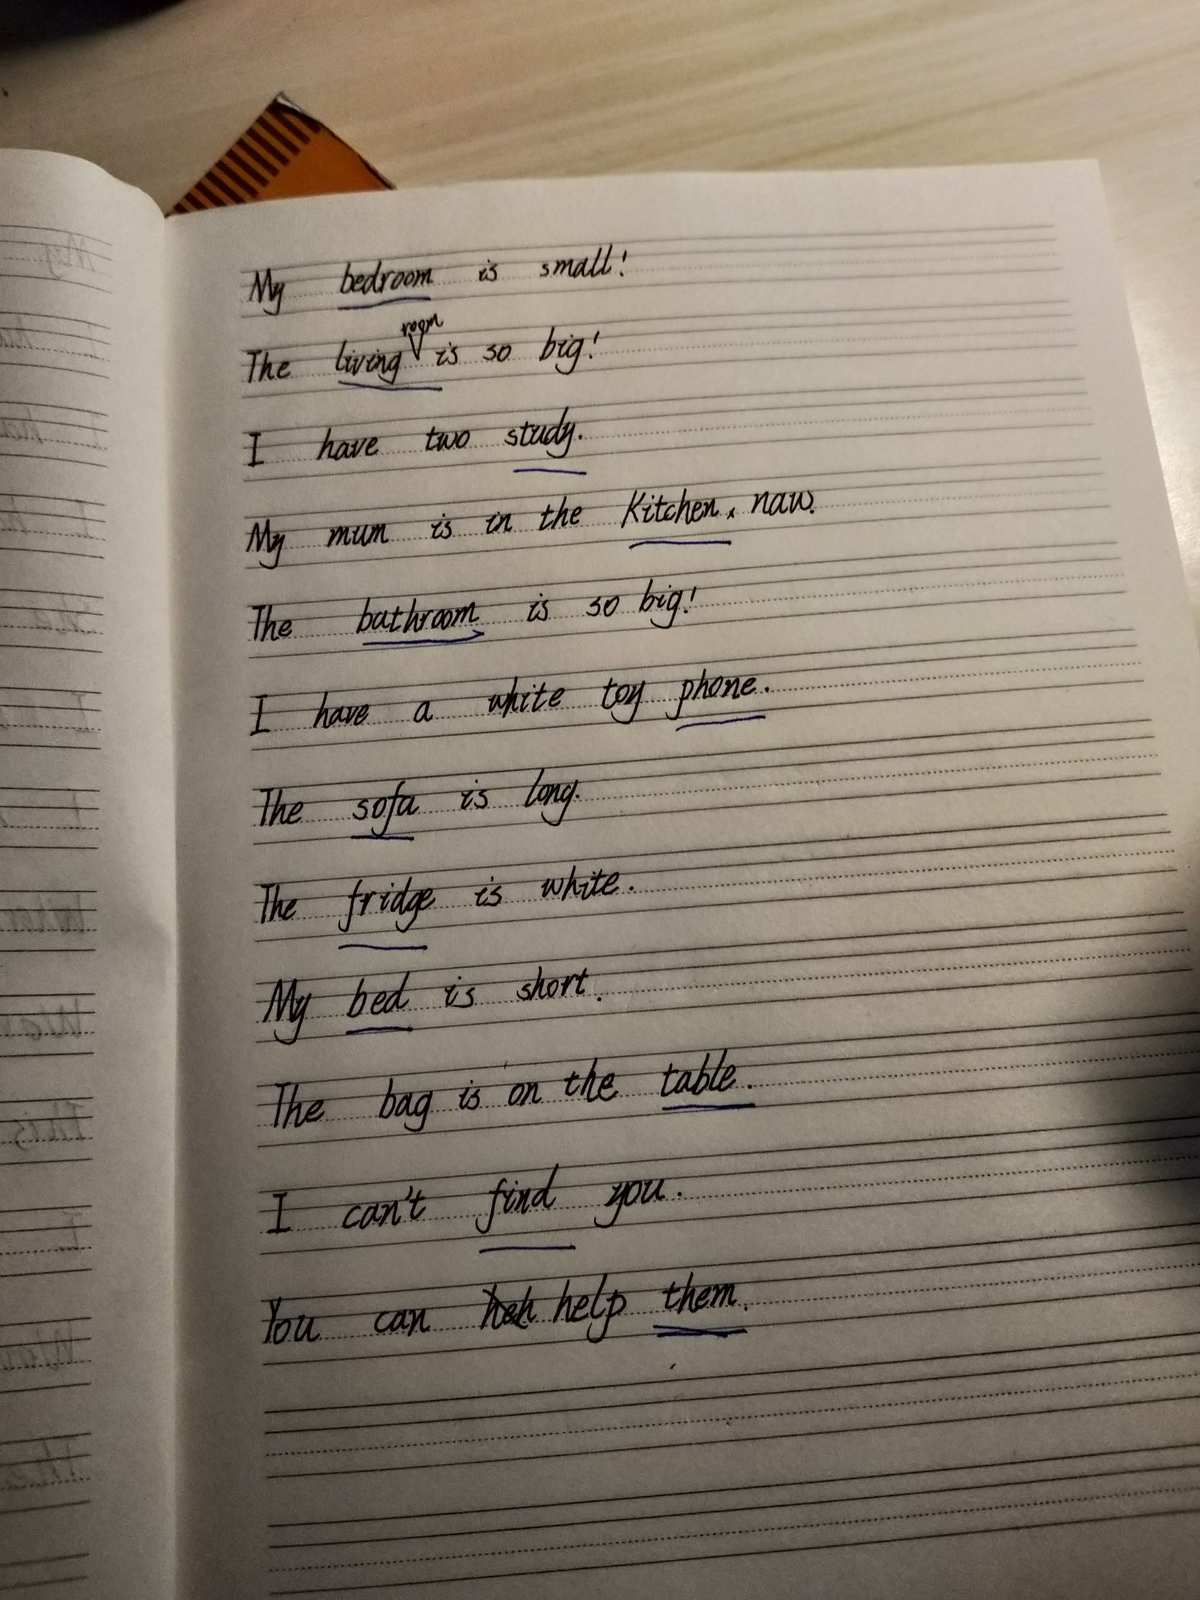 My bedroom is small!
The living room is so big!
I have two study.
My mum is in the Kitchen. naw.
The bathroom is so big!
I have a white toy phone.
The sofa is long.
The fridge is white.
My bed is short.
The bag is on the table.
I can't find you.
You can help them.